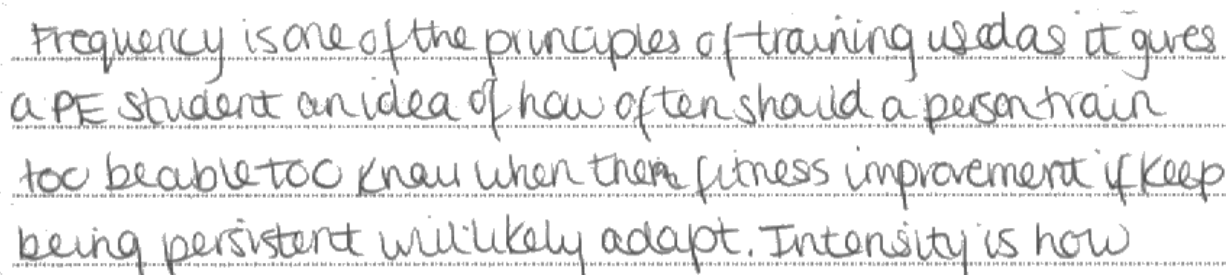 Frequency is one of the principles of training used as it gives
a PE student an idea of how often should a person train
too be able too know when their fitness improvement if keep
being persistent will likely adapt. Intensity is how